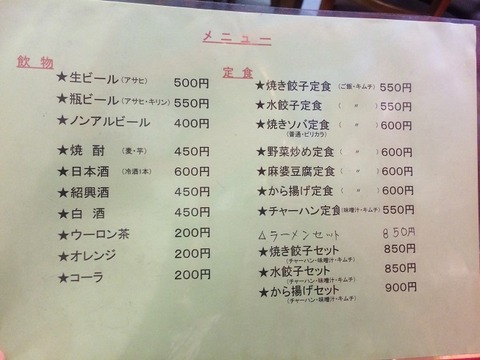 メニュー
飲物
★生ビール(アサヒ) 500円
★瓶ビール(アサヒ・キリン) 550円
★ノンアルビール 400円
★焼酎 (麦・芋) 450円
★日本酒 (冷酒1本) 600円
★紹興酒 450円
★白酒 450円
★ウーロン茶 200円
★オレンジ 200円
★コーラ 200円
定食
★焼き餃子定食 (ご飯・キムチ) 550円
★水餃子定食 ( 〃 ) 550円
★焼きソバ定食 ( 〃 ) 600円
(普通・ピリカラ)
★野菜炒め定食 ( 〃 ) 600円
★麻婆豆腐定食 ( 〃 ) 600円
★から揚げ定食 ( 〃 ) 600円
★チャーハン定食 (味噌汁・キムチ) 550円
△ラーメンセット 850円
★焼き餃子セット 850円
(チャーハン・味噌汁・キムチ)
★水餃子セット 850円
(チャーハン・味噌汁・キムチ)
★から揚げセット 900円
(チャーハン・味噌汁・キムチ)